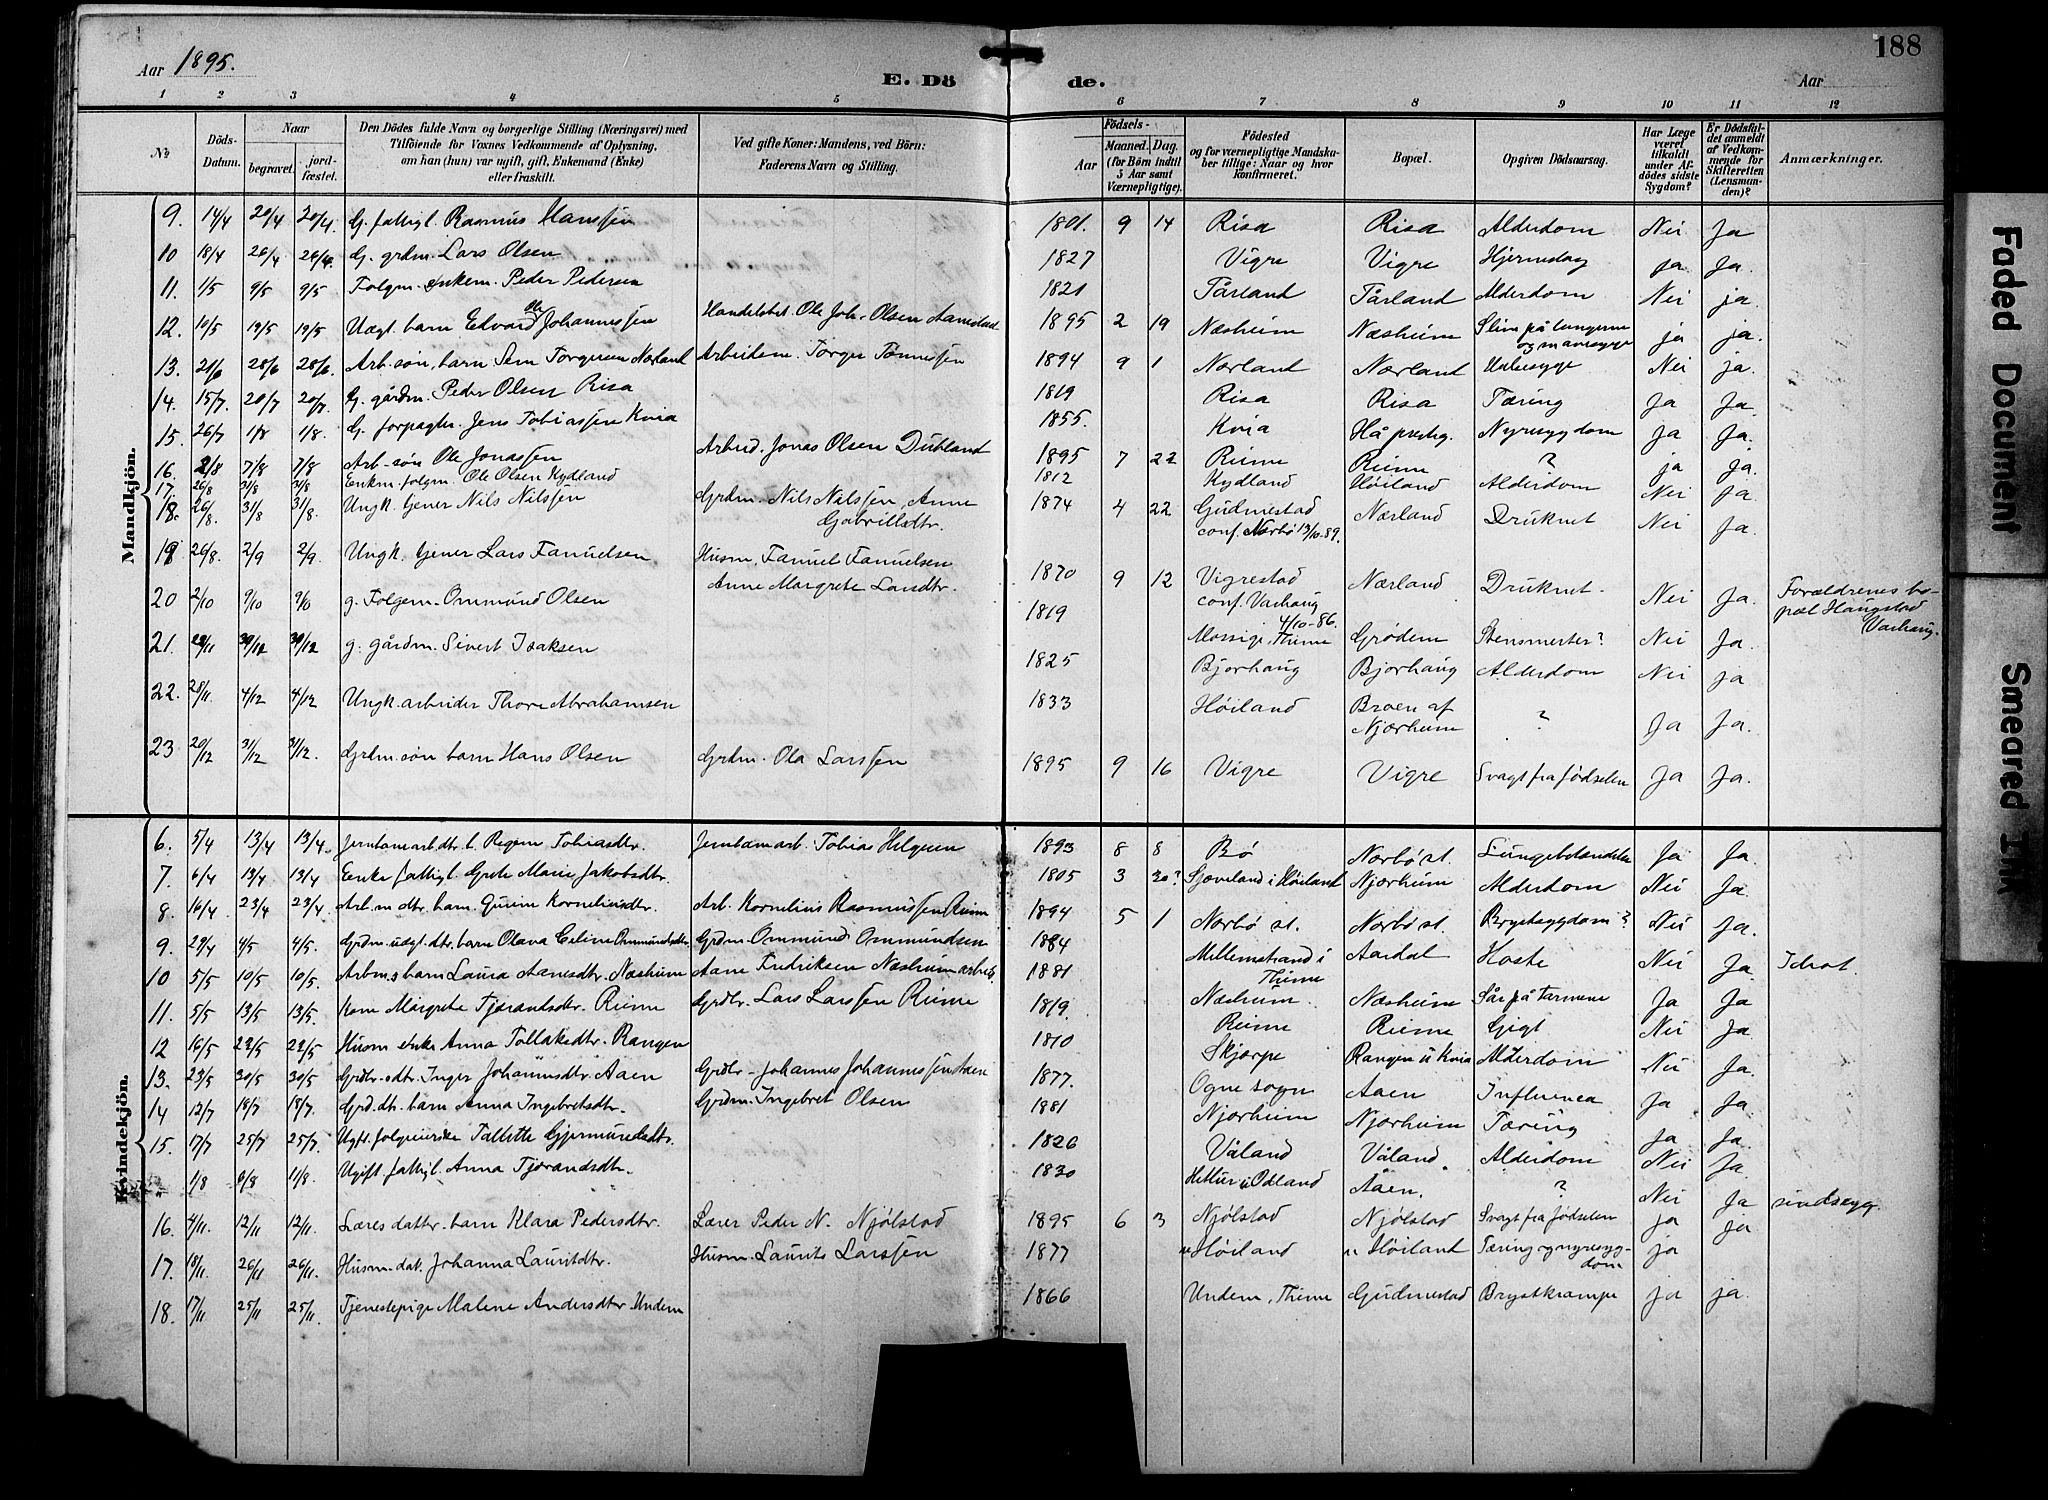 188
Aar 1895.
E. Dö
de.
Aar
1 2 3 4 5 6 7 8 9 10 11 12
No
Döds-Datum.
Naar
begravet.
jord-fæstet.
Den Dödes fulde Navn og borgerlige Stilling (Næringsvei) med
Tilföiende for Voxnes Vedkommende af Oplysning,
om han (hun) var ugift, gift, Enkemand (Enke)
eller fraskilt.
Ved gifte Koner: Mandens, ved Börn:
Faderens Navn og Stilling.
Aar
Födsels-
Maaned. Dag.
(for Börn indtil
5 Aar samt
Værnepligtige).
Födested
og for værnepligtige Mandska-
ber tillige: Naar og hvor
konfirmeret.
Bopæl.
Opgiven Dödsaarsag.
Har Læge
været
tilkaldt
under Af-
dödes sidste
Sygdom?
Er Dödsfal-
det anmeldt
af Vedkom-
mende for
Skifteretten
(Lensman-
den)?
Anmærkninger.
Mandkjön.
9. 14/4 20/4 20/4. G. fattigl. Rasmus Hanssen 1801. 9 14 Risa Risa Alderdom Nei Ja
10 18/4 26/4 26/4. G. grdm. Lars Olsen 1827 Vigre Vigre Hjerneslag ja Ja.
11. 1/5 9/5 9/5 Folgm. enkem. Peder Pedersen 1821 Tårland Tårland Alderdom Nei ja
12. 10/5 19/5 19/5 Uægt. barn Edvard Johannessen Handelsbet. Ole Joh. Olsen Aanestad 1895 2 19 Næsheim Næsheim Slim på lungerne
og mavesyge ja ja.
13. 21/6 28/6 28/6. Arb. søn, barn Sem Torgersen Nærland Arbeidem. Torger Tønnessen 1894 9 1 Nærland Nærland Nei ja.
14. 15/7. 20/7 20/7. G. gårdm. Peder Olsen Risa 1819 Risa Risa Tæring Ja Ja.
15. 26/7 1/8 1/8. G. forpagter. Jens Tobiassen Kvia 1855. Kvia Hå prestg. Nyresygdom Ja Ja.
16. 2/8 7/8 7/8 Arb. søn Ole Jonassen Arbeid. Jonas Olsen Dubland 1895 7 22 Reime Reime ? ja Ja.
17. 26/8 31/8 31/8 Enkm. folgm. Ole Olsen Kydland 1812 Kydland Høiland Alderdom Nei Ja.
18. 26/8. 31/8 31/8. Ungk. tjener Nils Nilssen Grdm. Nils Nilssen, Anne
Gabrillsdtr. 1874 4 22 Gudmestad
conf. Nærbø 13/10-89. Nærland Druknet Nei Ja.
19 26/8. 2/9 2/9 Ungk. tjener Lars Fanuelsen Husm. Fanuel Fanuelsen
Anne Margrete Larsdtr. 1870 9 12 Vigrestad
conf. Varhaug
4/10-86. Nærland Druknet. Nei Ja. Forældrenes bo-
pæl Haugstad
Varhaug.
20 2/10 9/10 g. Folgem. Ommund Olsen 1819 Mossige, Thime Grødem Stensmerter? Nei Ja.
21. 30/12 g. gårdm. Sivert Isaksen 1825 Bjorhaug Bjorhaug Alderdom Nei ja
22. 28/11. 4/12 4/12 Ungk. arbeider Thore Abrahamsen 1833 Høiland Broen af
Njærheim ? Ja Ja.
23 20/12 31/12 31/12. Grdm. søn barn Hans Olsen Grdm. Ola Larssen 1895 9 16 Vigre Vigre Svagt fra fødselen Ja Ja.
Kvindekjön.
6. 5/4 13/4 13/4. Jernbanearb. dtr. b. Regine Tobiasdtr. Jernbanearb. Tobias Helgesen 1893 8 8 Bø Nærbø st. Lungebetændelse Ja Ja.
7. 6/4 13/4 13/4 Enke fattigl. Grete Marie Jakobsdtr. 1805 3 30? i Høiland Njærheim Alderdom Nei Ja.
8. 16/4. 23/4 23/4 Arb.m dtr. barn. Gurine Korneliusdtr. Arb. Kornelius Rasmussen Reime 1894 5 1 Nærbø st. Nærbø st. Brystsygdom? Nei Ja.
9. 29/4 4/5 4/5. Grdm. uægt. dtr. barn Olava Celine Ommundsdtr. Grdm. Ommund Ommundsen 1884 Mellemstrand i
Thime Aardal Hoste Nei Ja Idiot.
10 5/5 10/5 10/5. Arbm.s barn Laura Aanesdtr. Næsheim Aane Fredriksen Næsheim arbeid. 1881 Næsheim. Næsheim Sår på tarmene Ja Ja
11. 5/5 13/5 13/5. Kone Margrete Tjerandsdtr. Reime Grdbr. Lars Larssen Reime 1819. Reime Reime Gigt Nei Ja
12 16/5 22/5 22/5. Husm enke Anna Tollaksdtr. Rangen 1810 Skjærpe Rangen u Kvia Alderdom Nei Ja.
13. 23/5 30/5 30/5. Grdbr. dtr. Inger Johannesdtr. Aaen Grdbr. Johannes Johannessen Aaen 1877. Ogne sogn Aaen Influenca Ja Ja.
14 12/7 18/7 18/7. Grd. dtr. barn Anna Ingebretsdtr. Grdm. Ingebret Olsen 1881 Njærheim Njærheim Tæring Ja Ja.
15. 17/7 25/7 25/7. Ugft. Tallette Gjermundsdtr. 1826 Våland Våland. Alderdom Nei Ja.
" 1/8 8/8 11/8. Ugift fattigl. Anna Tjerandsdtr. 1830 Hetlur i Odland Åaen. ? Nei Ja sindssyg.
16. 4/11. 12/11 12/11. Læres datter. barn Klara Pedersdtr. Lærer Peder N. Njølstad 1895 6 3 Njølstad Njølstad Svagt fra fødselen ja Ja
17. 18/11. 26/11 26/11. Husm. dat. Johanna Lauritsdtr. Husm. Laurits Larssen 1877 u Høiland u Høiland Tæring og nyresyg-
dom ja
18. 17/11 25/11 25/11. Tjenestepige Malene Andersdtr. Undem 1866 Undem, Thime Gudmestad Brystkrampe ja ja.
Faded Document
Smeared Ink